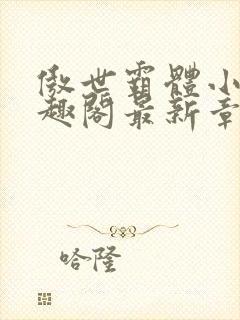 傲世霸體小
趣閣最新章
哈隆